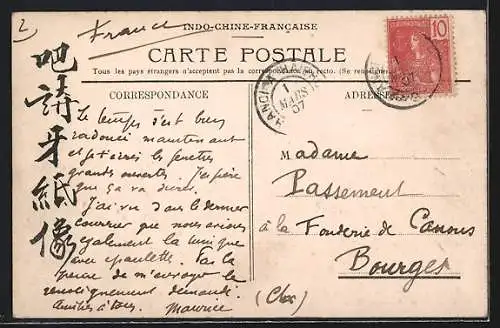 2
France
INDO-CHINE-FRANÇAISE
CARTE POSTALE
Tous les pays étrangers n'acceptent pas la correspondance au recto. (Se renseigner
CORRESPONDANCE
ADRESSE
10
1
MARS
07
吧
詩
牙
紙
像
Le temps s'est bien
radouci maintenant
et j'écris les fenêtres
grandes ouvertes. J'espère
que ça va durer.
J'ai vu dans le dernier
courrier que nous avions
également la tunique
avec épaulettes. Pas la
peine de m'envoyer le
renseignement demandé.
Amitiés à tous. Maurice
Madame
Passement
à la Fonderie de Canons
Bourges
(Cher)